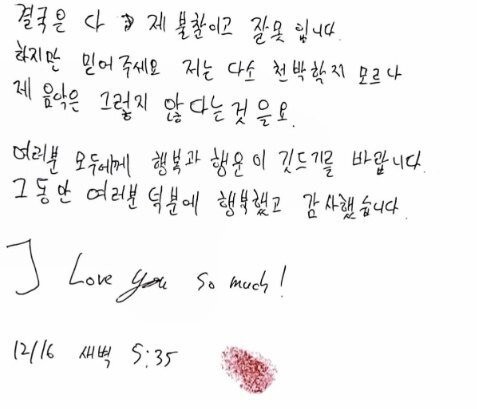 결국은 다 제 불찰이고 잘못 입니다.
하지만 믿어주세요 저는 다소 천박할지 모르나
제 음악은 그렇지 않다는 것을요.
여러분 모두에게 행복과 행운이 깃드기를 바랍니다.
그동안 여러분 덕분에 행복했고 감사했습니다.
I Love you so much!
12/16 새벽 5:35